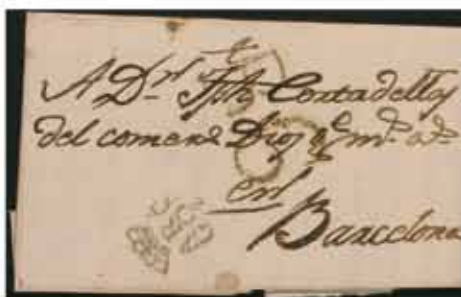 A Dn. Jph Cortadellas
del comers Dios ge. ms. as.
en
Barcelona